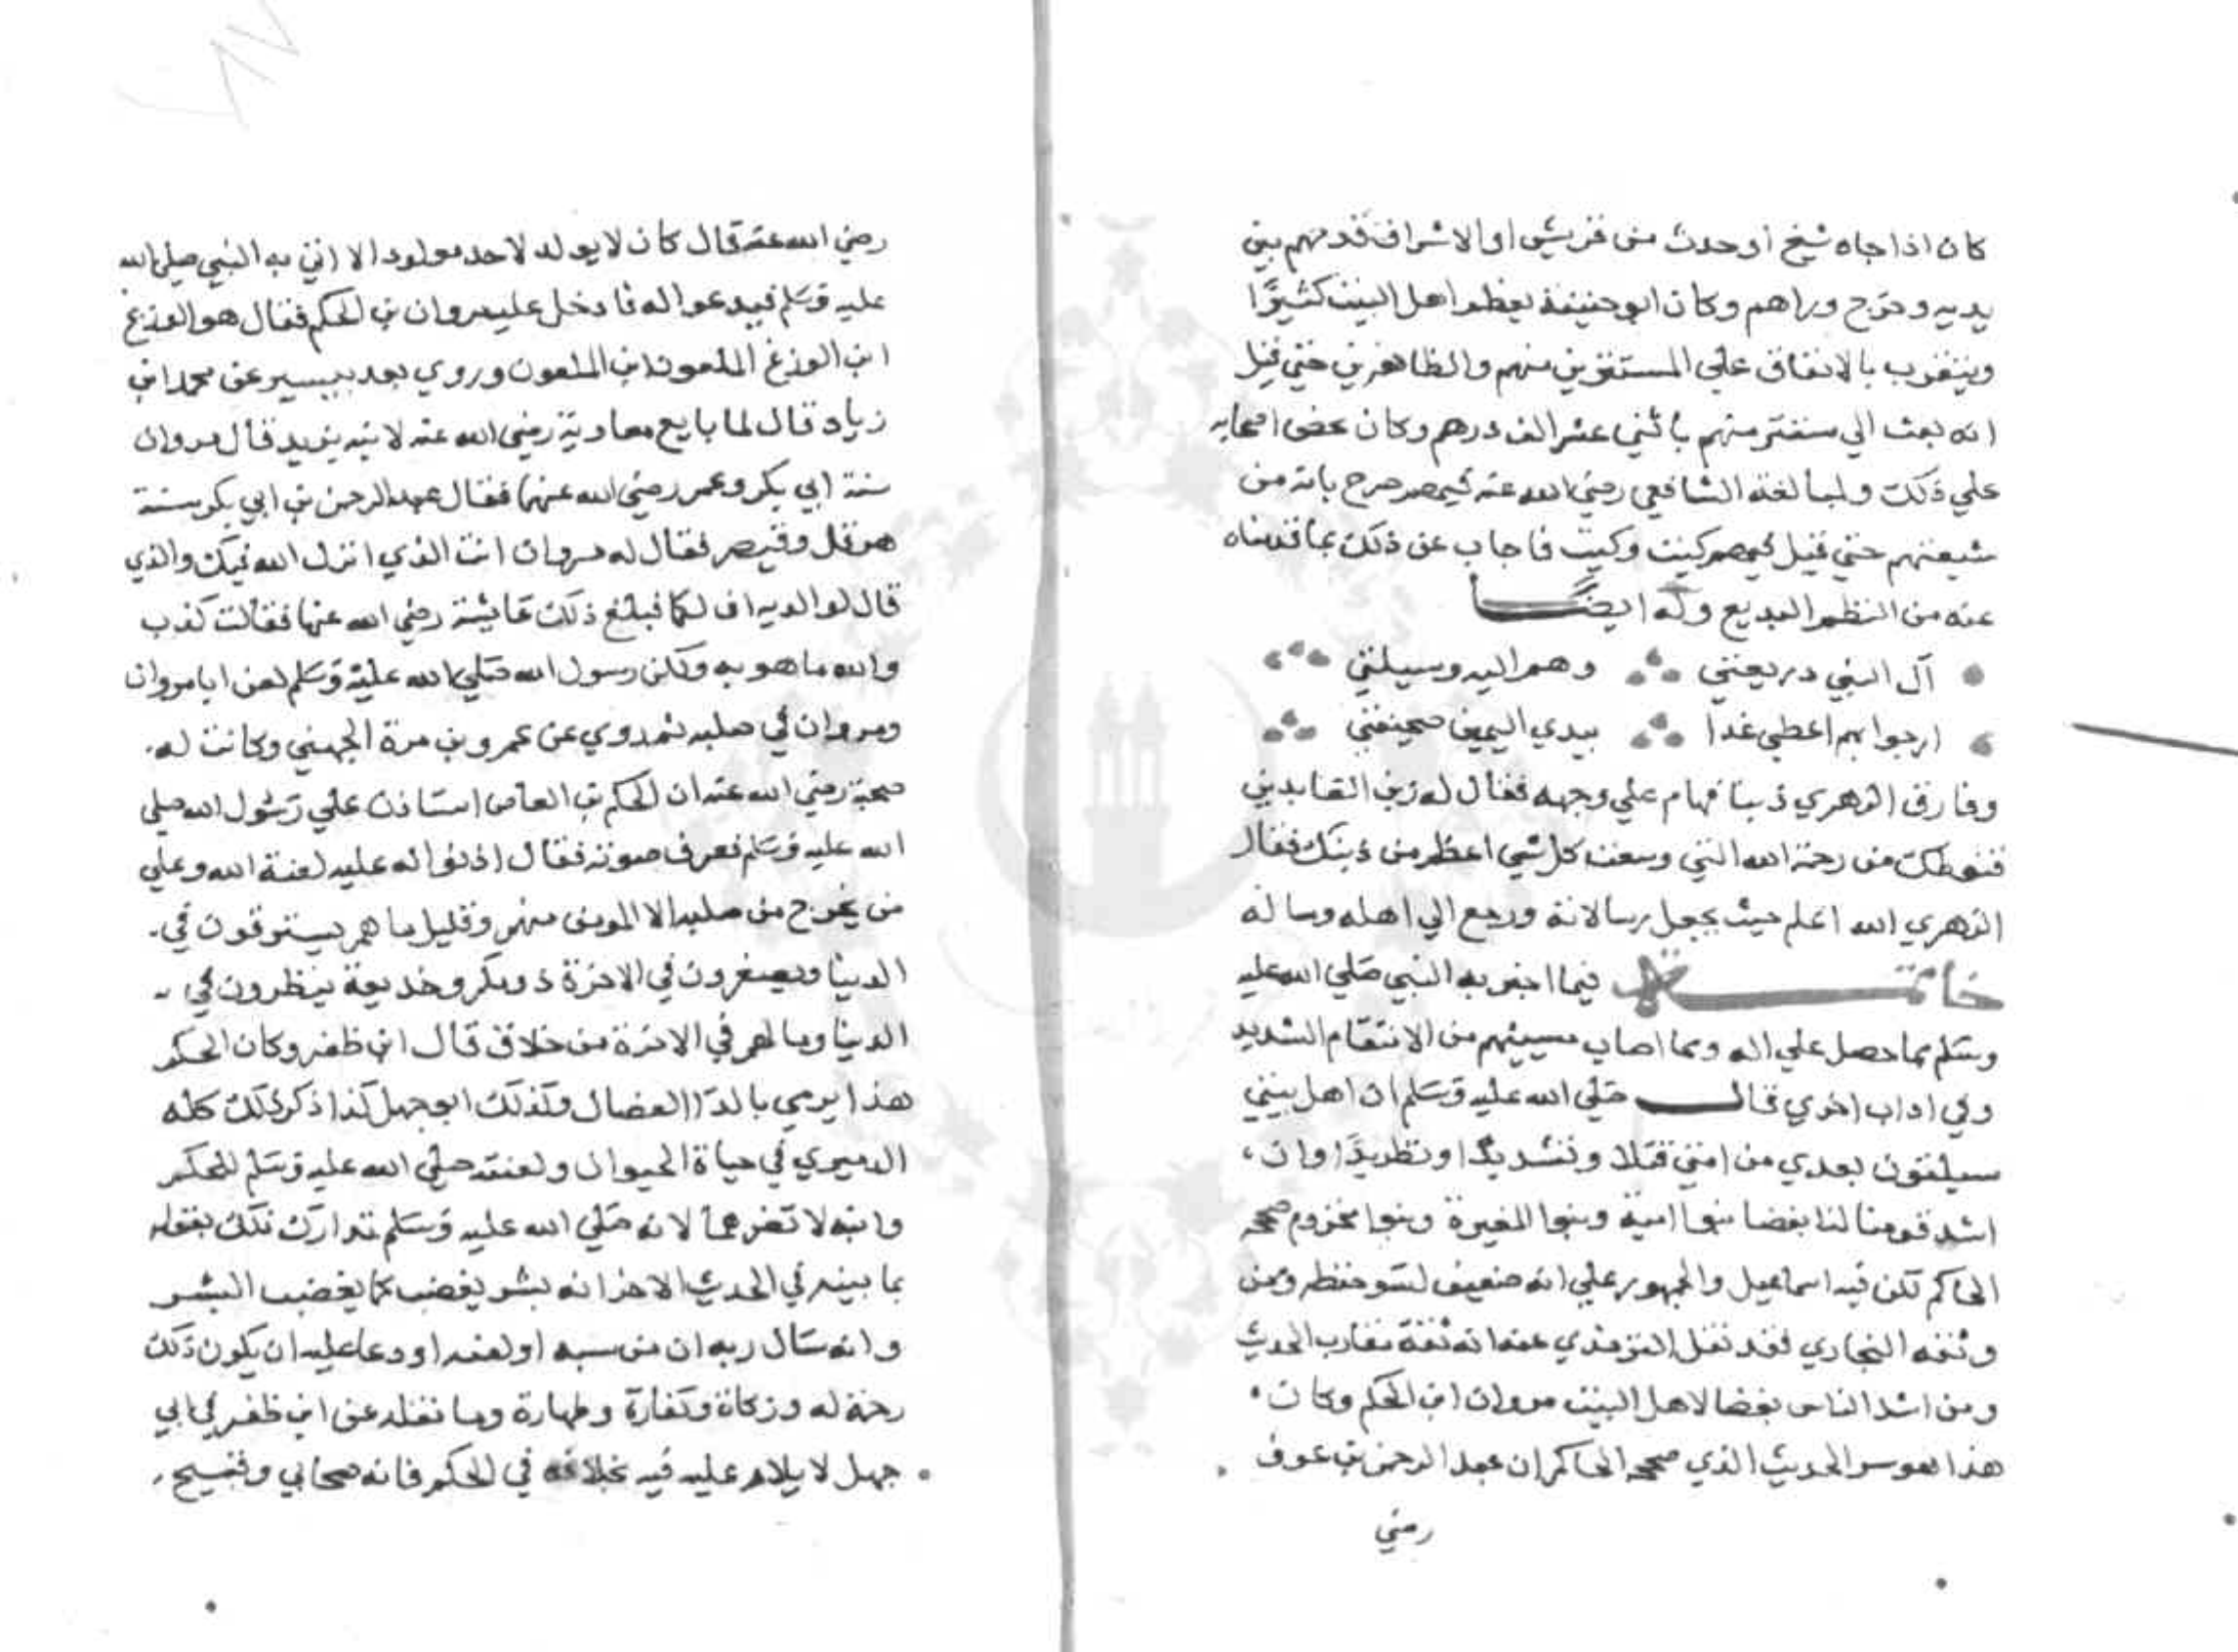 كان اذا جاه شيخ او حدث من قريش او الاشراف قدمهم بين
يديه وخرج وراهم وكان ابو حنيفة يعظم اهل البيت كثيرًا
ويتقرب بالانفاق علي المستترين منهم والظاهرين حتي قيل
انه بعث الي مستتر منهم باثني عشر الف درهم وكان يحض اصحابه
علي ذلك ولمبالغة الشافعي رضي الله عنه فيهم صرح بانه من
شيعتهم حتي قيل فيهم كيت وكيت فاجاب عن ذلك بما قدمناه
عنه من النظم البديع وله ايضًا
آل النبي ذريعتي وهم اليه وسيلتي
ارجوا بهم اعطي غدا بيدي اليمين صحيفتي
وفارق الزهري ذنبا فهام علي وجهه فقال له زين العابدين
قنوطك من رحمة الله التي وسعت كل شي اعظم من ذنبك فقال
الزهري الله اعلم حيث يجعل رسالاته ورجع الي اهله وماله
خاتمة فيما اخبر به النبي صلي الله عليه
وسلم مما حصل علي اله ومما اصاب مسيئهم من الانتقام الشديد
وفي اداب اخري قال صلي الله عليه وسلم ان اهل بيتي
سيلقون بعدي من امتي قتلا وتشديدًا وتطريدًا وان
اشد قومنا لنا بغضا بنوا امية وبنوا المغيرة وبنوا مخزوم صححه
الحاكم لكن فيه اسماعيل والجمهور علي انه ضعيف لسو حفظه وممن
وثقه البخاري فقد نقل الترمذي عنه انه ثقة مقارب الحديث
ومن اشد الناس بغضا لاهل البيت مروان ابن الحكم وكان
هذا هو سر الحديث الذي صححه الحاكم ان عبد الرحمن بن عوف
رضي
رضي الله عنه قال كان لا يولد لاحد مولود الا اتي به النبي صلي الله
عليه وسلم فيدعوا له فادخل عليه مروان بن الحكم فقال هو الوزغ
ابن الوزغ الملعون ابن الملعون وروي بعد بيسير عن محمد ابن
زياد قال لما بايع معاوية رضي الله عنه لابنه يزيد قال مروان
سنة ابي بكر وعمر رضي الله عنهما فقال عبد الرحمن بن ابي بكر سنة
هرقل وقيصر فقال له مروان انت الذي انزل الله فيك والذي
قال لوالديه اف لكما فبلغ ذلك عايشة رضي الله عنها فقالت كذب
والله ما هو به ولكن رسول الله صلي الله عليه وسلم لعن ابا مروان
ومروان في صلبه ثم روي عن عمرو بن مرة الجهني وكانت له
صحبة رضي الله عنه ان الحكم بن العاص استاذن علي رسول الله صلي
الله عليه وسلم فعرف صوته فقال اذنوا له عليه لعنة الله وعلي
من يخرج من صلبه الا المومن منهم وقليل ما هم يسترقون في
الدنيا ويصغرون في الاخرة ذو مكر وخديعة ينظرون في
الدنيا وما لهم في الاخرة من خلاق قال ابن ظفر وكان الحكم
هذا يرمي بالدا العضال وكذلك ابو جهل كذا ذكر ذلك كله
الدميري في حياة الحيوان ولعنته صلي الله عليه وسلم للحكم
وابنه لا تضرهما لانه صلي الله عليه وسلم تدارك ذلك بقوله
بما بينه في الحديث الاخر انه بشر يغضب كما يغضب البشر
وانه سال ربه ان من سبه او لعنه او دعا عليه ان يكون ذلك
رحمة له وزكاة وكفارة وطهارة وما نقله عن ابن ظفر في ابي
جهل لا يلام عليه فيه بخلافه في الحكم فانه صحابي وقبيح